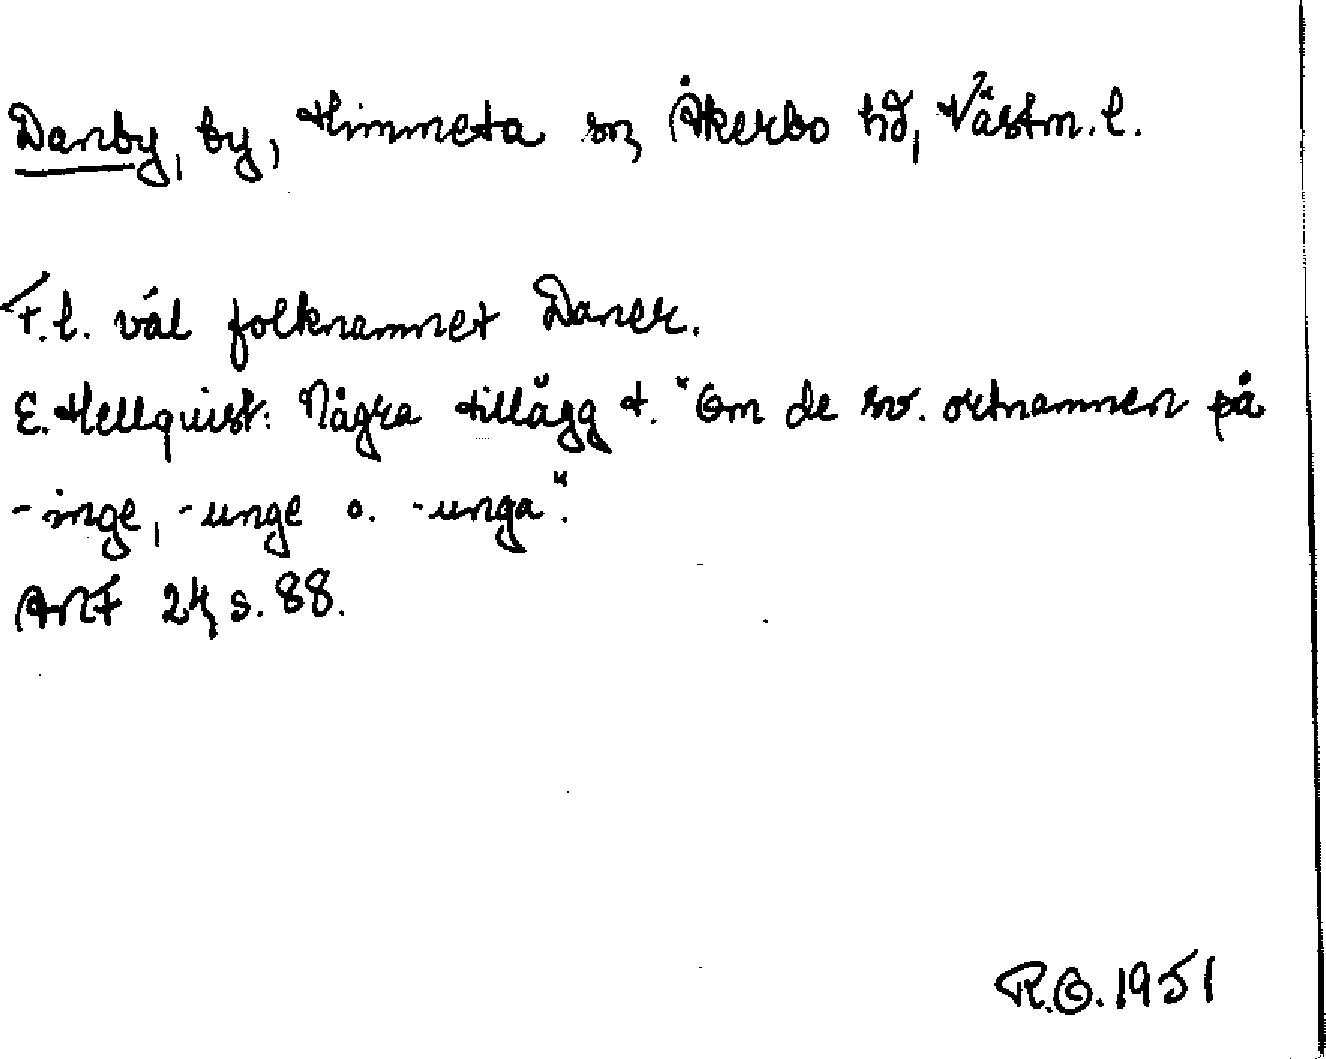 Danby, by, Himmeta sn, Åkerbo hd, Västm. l.
F.l. väl folknamnet Daner.
E. Hellquist: Några tillägg t. "Om de sv. ortnamnen på
-inge, -unge o. -unga".
ANF 24, s. 88.
R.O. 1951